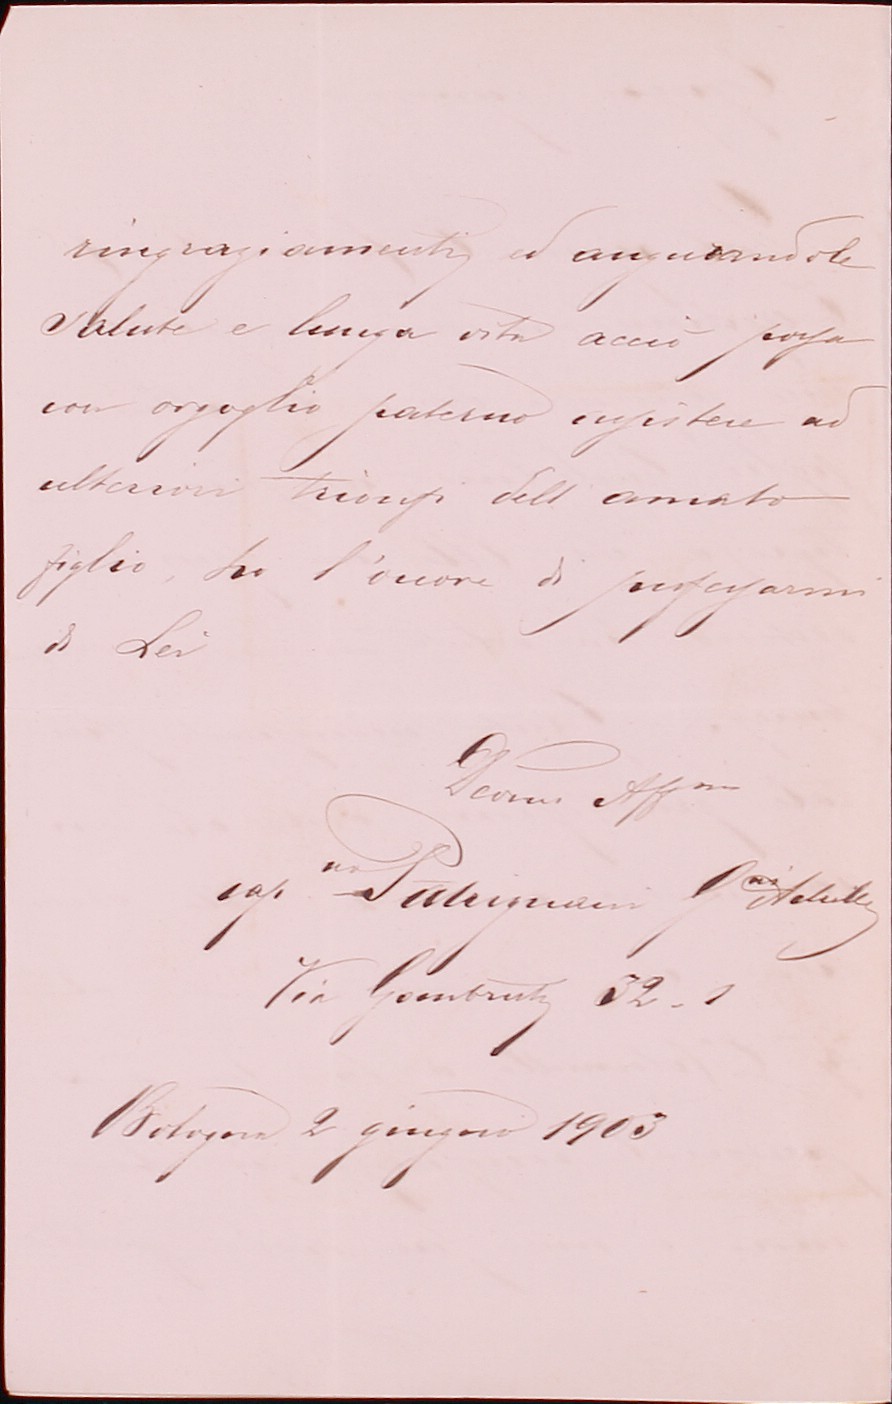 ringraziamenti, ed augurandole
salute e lunga vita acciò possa
con orgoglio paterno assistere ad
ulteriori trionfi dell amato
figlio, ho l'onore di professarmi
di Lei
Affmo
cap no Patrignani Achille
Via Gombruti 32
Bologna 2 giugno 1903